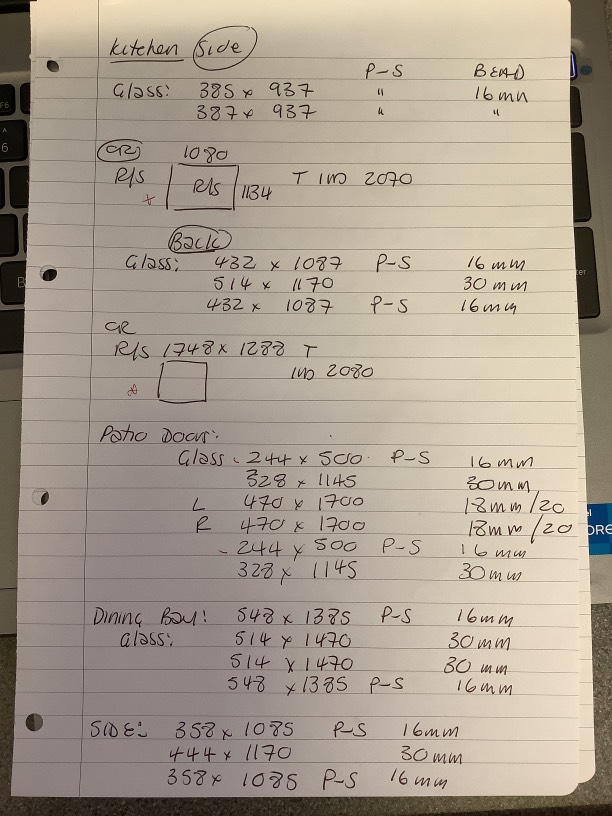 Kitchen Side
P-S BEAD
Glass: 385 x 937 " 16mm
387 x 937 " "
GR 1080
R/S R/S 1134 T IND 2070
Back
Glass: 432 x 1087 P-S 16mm
514 x 1170 30mm
432 x 1087 P-S 16mm
GR
R/S 1748 x 1288 T
IND 2080
Patio Doors:
Glass 244 x 500 P-S 16mm
328 x 1145 30mm
L 470 x 1700 18mm/20
R 470 x 1700 18mm/20
- 244 x 500 P-S 16mm
328 x 1145 30mm
Dining Bay: 548 x 1385 P-S 16mm
Glass: 514 x 1470 30mm
514 x 1470 30mm
548 x 1385 P-S 16mm
SIDE: 358 x 1085 P-S 16mm
444 x 1170 30mm
358 x 1085 P-S 16mm